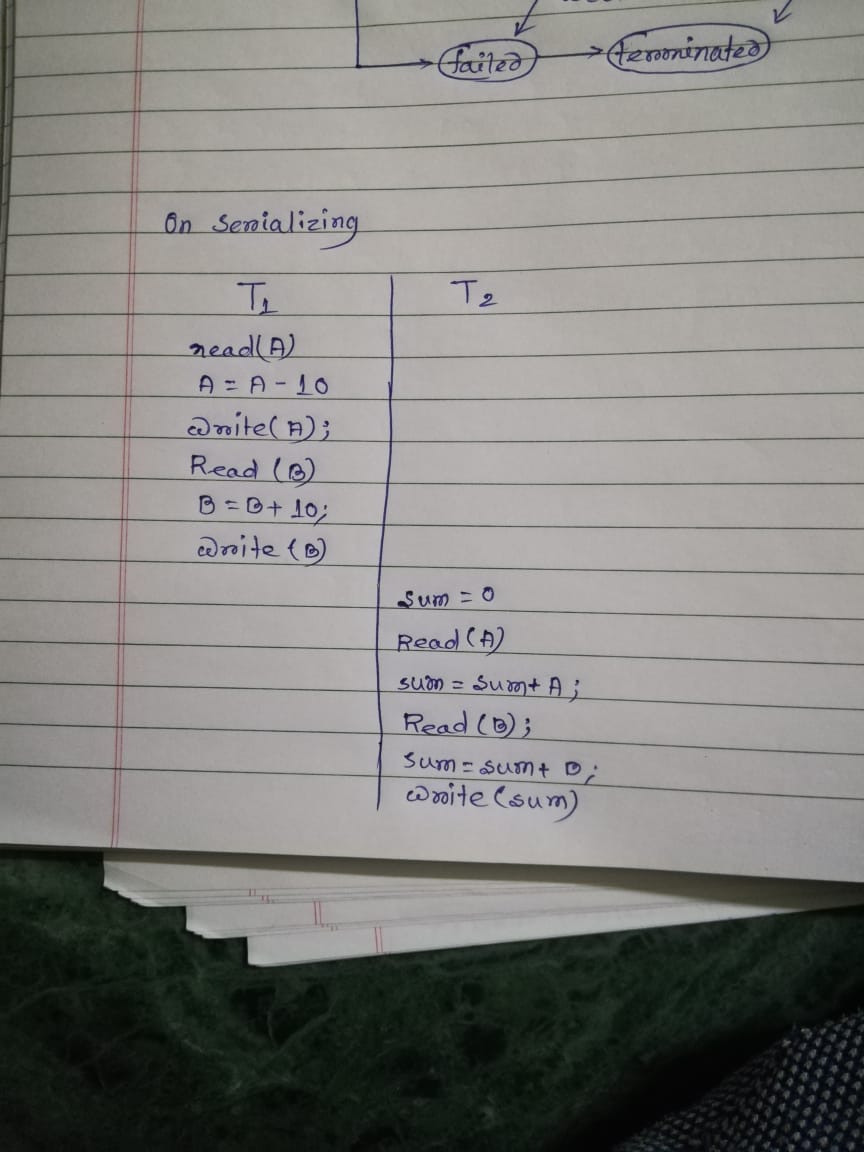 failed
terminated
On Serializing
T1 T2
read(A)
A = A - 10
Write(A);
Read (B)
B = B + 10;
Write (B)
Sum = 0
Read (A)
sum = Sum + A;
Read (B);
Sum = sum + B;
Write (sum)